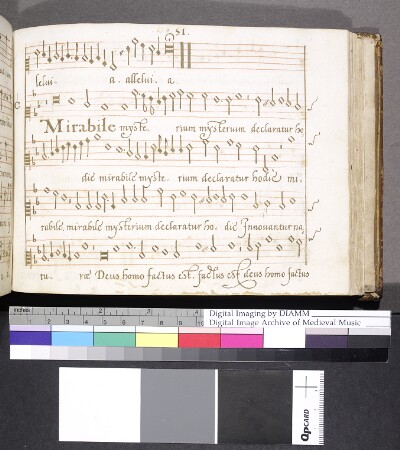 51.
lelui- a. allelui. a
C
Mirabile myste. rium mysterium declaratur ho
die mirabile myste. rium declaratur hodie mi.
rabile, mirabile mysterium declaratur ho. die Innovantur na
tu. ræ Deus homo factus est, factus est deus homo factus
inches 1 2 3 4
Digital Imaging by DIAMM
Digital Image Archive of Medieval Music
QPCARD